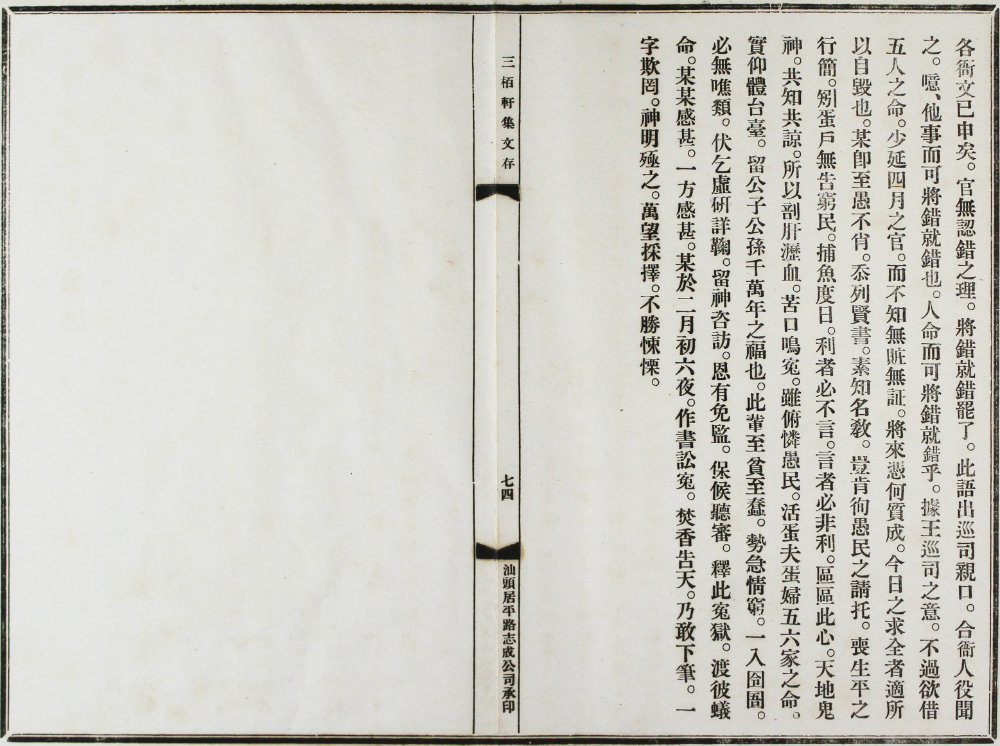 各衙文已申矣。官無認錯之理。將錯就錯罷了。此語出巡司親口。合衙人役聞
之。噫、他事而可將錯就錯也。人命而可將錯就錯乎。據王巡司之意。不過欲借
五人之命。少延四月之官。而不知無賍無証。將來憑何質成。今日之求全者適所
以自毀也。某卽至愚不肖。忝列賢書。素知名敎。豈肯徇愚民之請托。喪生平之
行簡。矧蛋戶無告窮民。捕魚度日。利者必不言。言者必非利。區區此心。天地鬼
神。共知共諒。所以剖肝瀝血。苦口鳴寃。雖俯憐愚民。活蛋夫蛋婦五六家之命。
實仰體台臺。留公子公孫千萬年之福也。此輩至貧至蠢。勢急情窮。一入囹圄。
必無噍類。伏乞虛硏詳鞠。留神咨訪。恩有免監。保候聽審。釋此寃獄。渡彼蟻
命。某某感甚。一方感甚。某於二月初六夜。作書訟寃。焚香告天。乃敢下筆。一
字欺罔。神明殛之。萬望採擇。不勝悚慄。
三栢軒集文存
七四
汕頭居平路志成公司承印